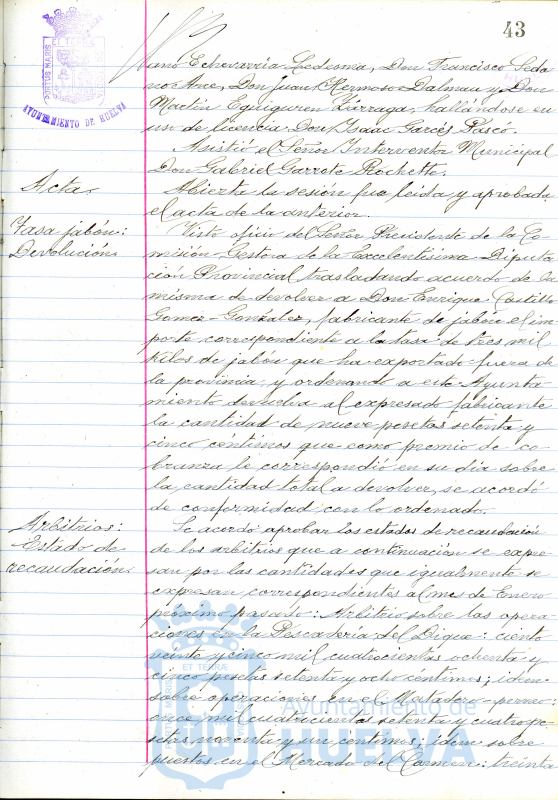 43
PORTUS MARIS
ET TERRÆ
AYUNTAMIENTO DE HUELVA
liano Echevarría Ledesma, Don Francisco Seda
no Arce, Don Juan Hermoso Dalmau y Don
Martín Eguiguren Lizrraga, hallándose en
uso de licencia Don Isaac Garcés Pascó.
Asistió el Señor Interventor Municipal
Don Gabriel Garrote Rochette.
Acta.
Abierta la sesión fue leída y aprobada
el acta de la anterior.
Tasa jabón:
Devolución.
Visto oficio del Señor Presidente de la Co-
misión Gestora de la Excelentísima Diputa
ción Provincial trasladando acuerdo de la
misma de devolver a Don Enrique Castilla
Gomez-González, fabricante de jabón el im-
porte correspondiente a la tasa de tres mil
kilos de jabón que ha exportado fuera de
la provincia, y ordenando a este Ayunta
miento devuelva al expresado fabricante
la cantidad de nueve pesetas setenta y
cinco céntimos que como premio de co-
branza le correspondió en su día sobre
la cantidad total a devolver, se acordó
de conformidad con lo ordenado.
Arbitrios:
Estado de
recaudación.
Se acordó aprobar los estados de recaudación
de los arbitrios que a continuación se expre
san por las cantidades que igualmente se
expresan correspondientes al mes de Enero
próximo pasado: Arbitrio sobre las opera
ciones en la Pescadería del Dique: ciento
veinte y cinco mil cuatrocientas ochenta y
cinco pesetas setenta y ocho céntimos; idem
sobre operaciones en el Matadero-perneo:
once mil cuatrocientas setenta y cuatro pe
setas noventa y un céntimos; idem sobre
puestos en el Mercado del Carmen: treinta
ET TERRÆ
Ayuntamiento de
HUELVA